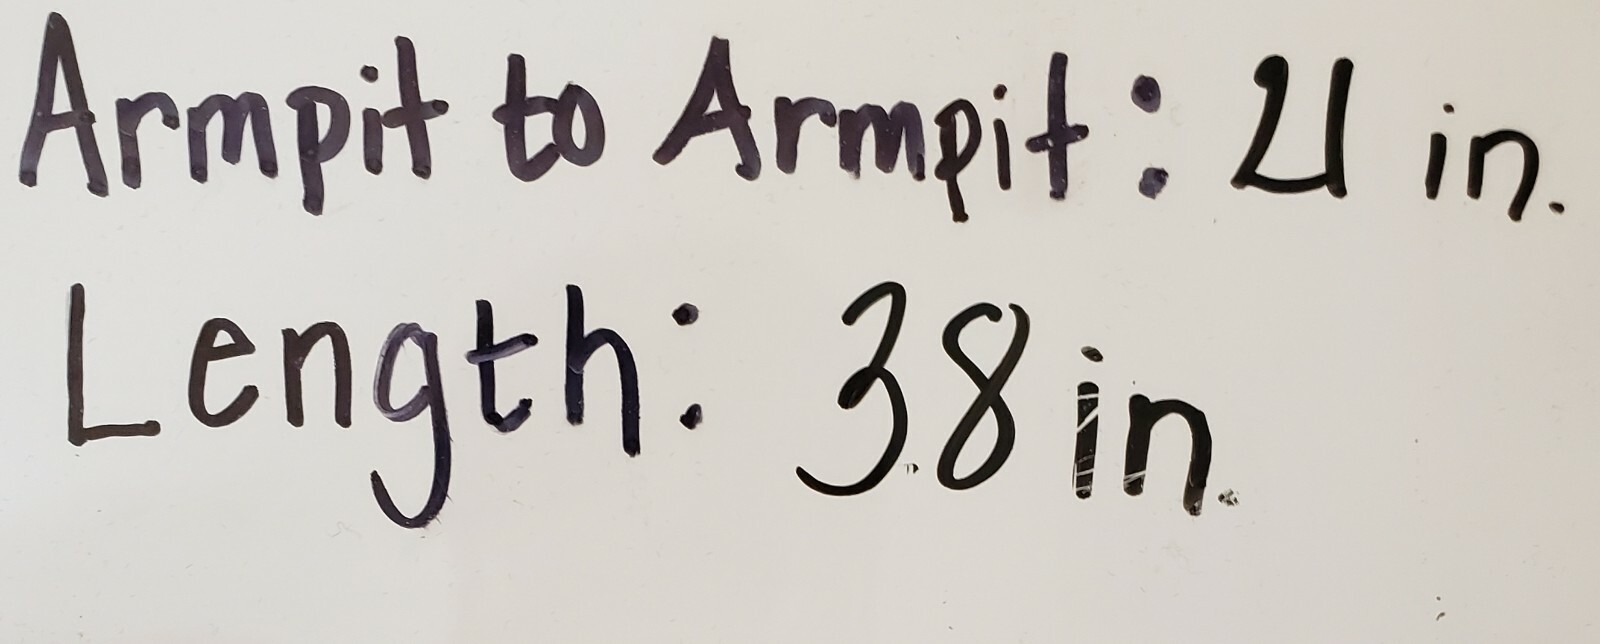 Armpit to Armpit: 21 in.
Length: 38 in.